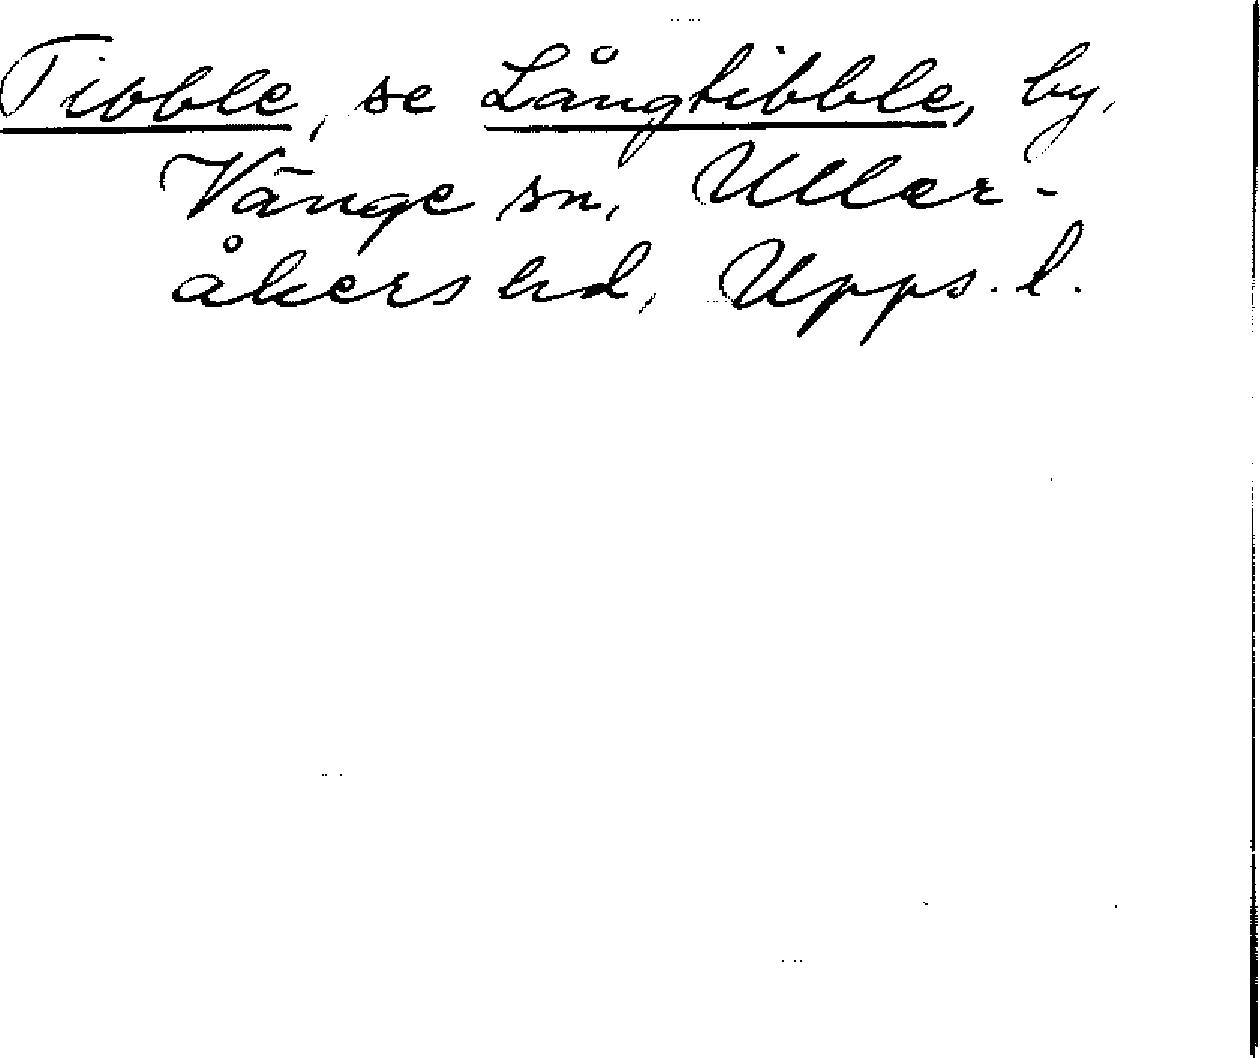 Tibble, se Långtibble, by,
Vänge sn, Uller-
åkers hd, Upps. l.